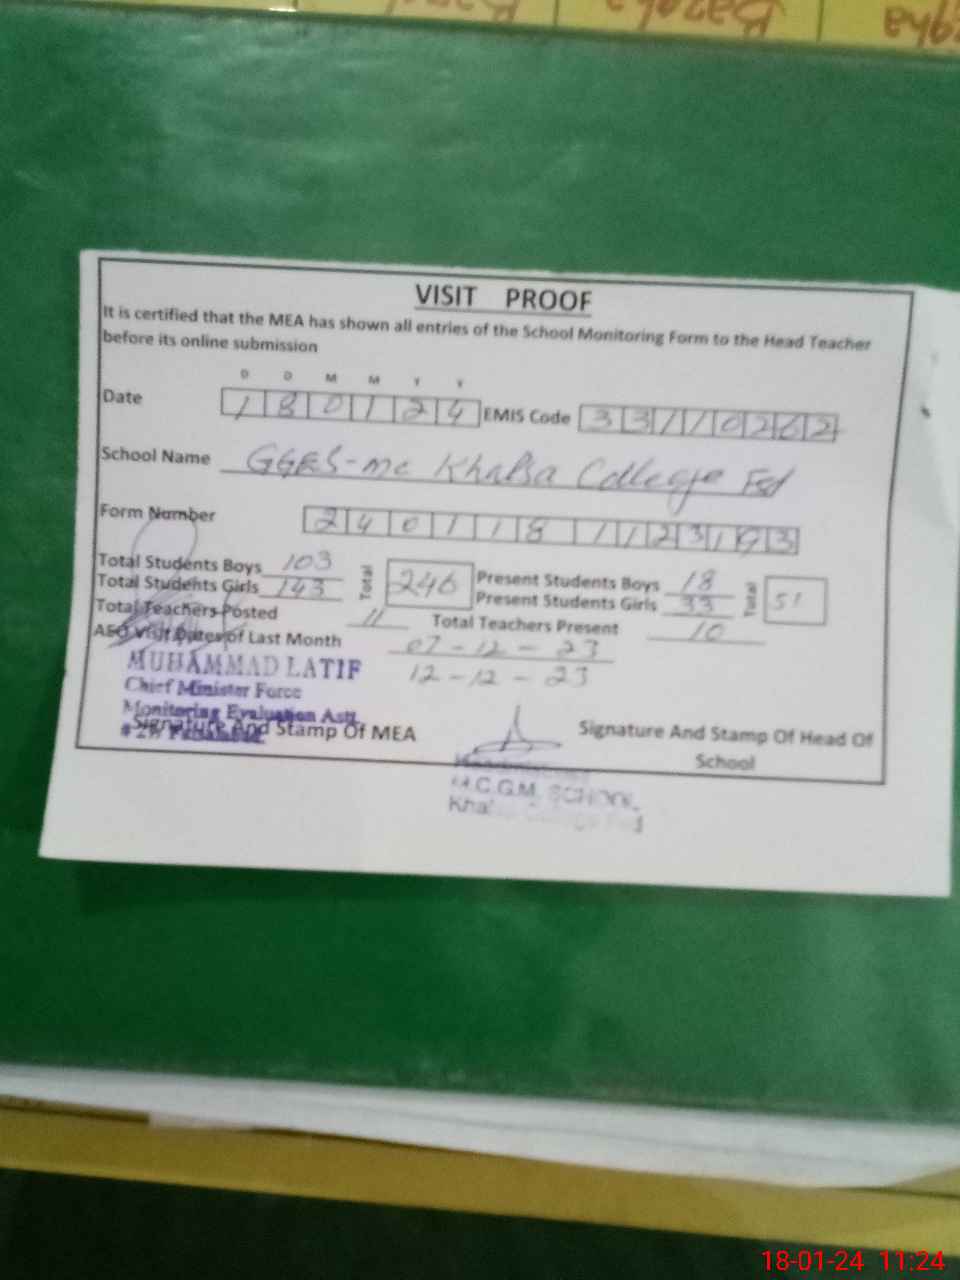 Bazgha
VISIT PROOF
It is certified that the MEA has shown all entries of the School Monitoring Form to the Head Teacher
before its online submission
D D M M Y Y
Date 180124 EMIS Code 33110262
School Name GGES-mc Khalsa College Fsd
Form Number 24011811123193
Total Students Boys 103 Total 246 Present Students Boys 18 Total 51
Total Students Girls 143 Present Students Girls 33
Total Teachers Posted 11 Total Teachers Present 10
AEO Visit Dates of Last Month 07-12-23
12-12-23
MUHAMMAD LATIF
Chief Minister Force
Monitoring Evaluation Astt.
Signature And Stamp Of MEA
Signature And Stamp Of Head Of
School
M.C.G.M. SCHOOL
Khalsa College Fsd
18-01-24 11:24